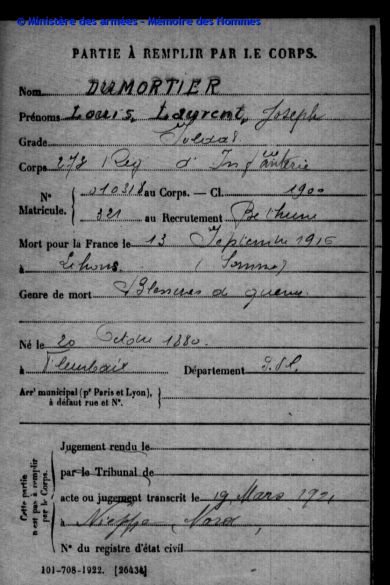 © Ministère des armées - Mémoire des Hommes
PARTIE À REMPLIR PAR LE CORPS.
Nom DUMORTIER
Prénoms Louis, Laurent, Joseph
Grade Soldat
Corps 278 Reg d'Infanterie
N° Matricule. { 010318 au Corps. — Cl. 1900
321 au Recrutement Béthune
Mort pour la France le 13 Septembre 1916
à Lihons (Somme)
Genre de mort Blessures de guerre
Né le 20 Octobre 1880.
à Fleurbaix Département P.d.C.
Arr^t municipal (p^r Paris et Lyon), à défaut rue et N°. }
Cette partie n'est pas à remplir par le Corps.
Jugement rendu le
par le Tribunal de
acte ou jugement transcrit le 19 Mars 1921
à Nieppe, Nord,
N° du registre d'état civil
101-708-1922. [26434]